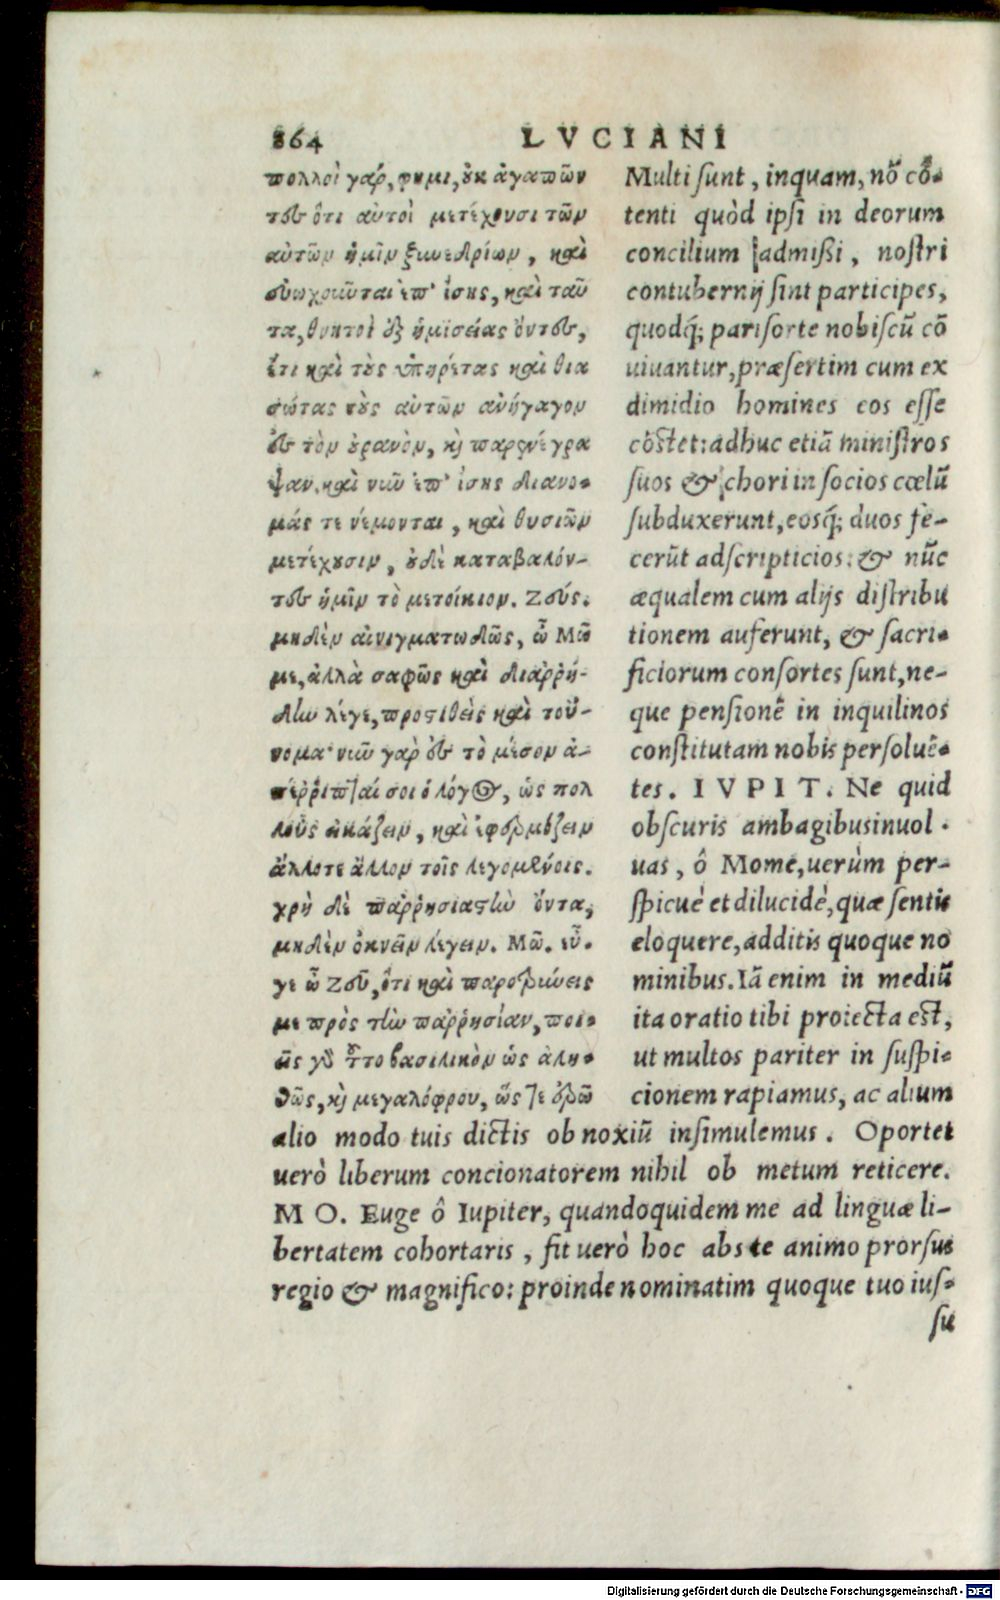 864 LVCIANI
πολλοὶ γάρ, φημι, ὐκ ἀγαπῶν
τες ὅτι αὐτοὶ μετέχουσι τῶν
αὐτῶν ἡμῖν ξυνεδρίων, καὶ
συωχοῦνται ἐπ' ἴσης, καὶ ταῦ
τα, θνητοὶ ἐξ ἡμισείας ὄντες,
ἔτι καὶ τὸς ὑπηρέτας καὶ θια
σώτας τὸς αὐτῶν ἀνήγαγον
ἐς τὸν ὀρανὸν, κὶ παρενέγρα
ψαν. καὶ νιῦ ἐπ' ἴσης διανο-
μάς τε νέμονται, καὶ θυσιῶν
μετέχουσιν, ὐδὲ καταβαλόν-
τες ἡμῖν τὸ μετοίκιον. Ζεύς.
μηδὲν αἰνιγματωδῶς, ὦ Μῶ
με, ἀλλὰ σαφῶς καὶ διαῤῥή-
δίω λέγε, προστιθεὶς καὶ τοὔ-
νομα· νιῦ γὰρ ἐς τὸ μέσον ἀ-
πέῤῥιπταί σοι ὁ λόγος, ὡς πολ
λοὺς εἰκάζειν, καὶ ἐφαρμόζειν
ἄλλοτε ἄλλον τοῖς λεγομένοις.
χρὴ δὲ παῤῥησιαστὴν ὄντα,
μηδὲν ὀκνεῖν λέγειν. Μῶ. εὖ-
γε ὦ Ζεῦ, ὅτι καὶ παροτρύνεις
με πρὸς τὴν παῤῥησίαν, ποι-
εῖς γὸ τῦτο βασιλικὸν ὡς ἀλη-
θῶς, κὶ μεγαλόφρον, ὥστε ἐρῶ
Multi sunt, inquam, nõ cõ-
tenti quòd ipsi in deorum
concilium admißi, nostri
contubernij sint participes,
quodq́; pari sorte nobiscũ cõ
uiuantur, præsertim cum ex
dimidio homines eos esse
cõstet: adhuc etiã ministros
suos & chori in socios cœlũ
subduxerunt, eosq́; duos fe-
cerũt adscripticios: & nũc
æqualem cum alijs distribu
tionem auferunt, & sacri-
ficiorum consortes sunt, ne-
que pensionẽ in inquilinos
constitutam nobis persoluẽ-
tes. IVPIT. Ne quid
obscuris ambagibus inuol-
uas, ô Mome, uerùm per-
spicuè et dilucidè, quæ sentis
eloquere, additis quoque no
minibus. Iã enim in mediũ
ita oratio tibi proiecta est,
ut multos pariter in suspi-
cionem rapiamus, ac alium
alio modo tuis dictis obnoxiũ insimulemus. Oportet
uerò liberum concionatorem nihil ob metum reticere.
MO. Euge ô Iupiter, quandoquidem me ad linguæ li-
bertatem cohortaris, fit uerò hoc abs te animo prorsus
regio & magnifico: proinde nominatim quoque tuo ius-
su
Digitalisierung gefördert durch die Deutsche Forschungsgemeinschaft - DFG